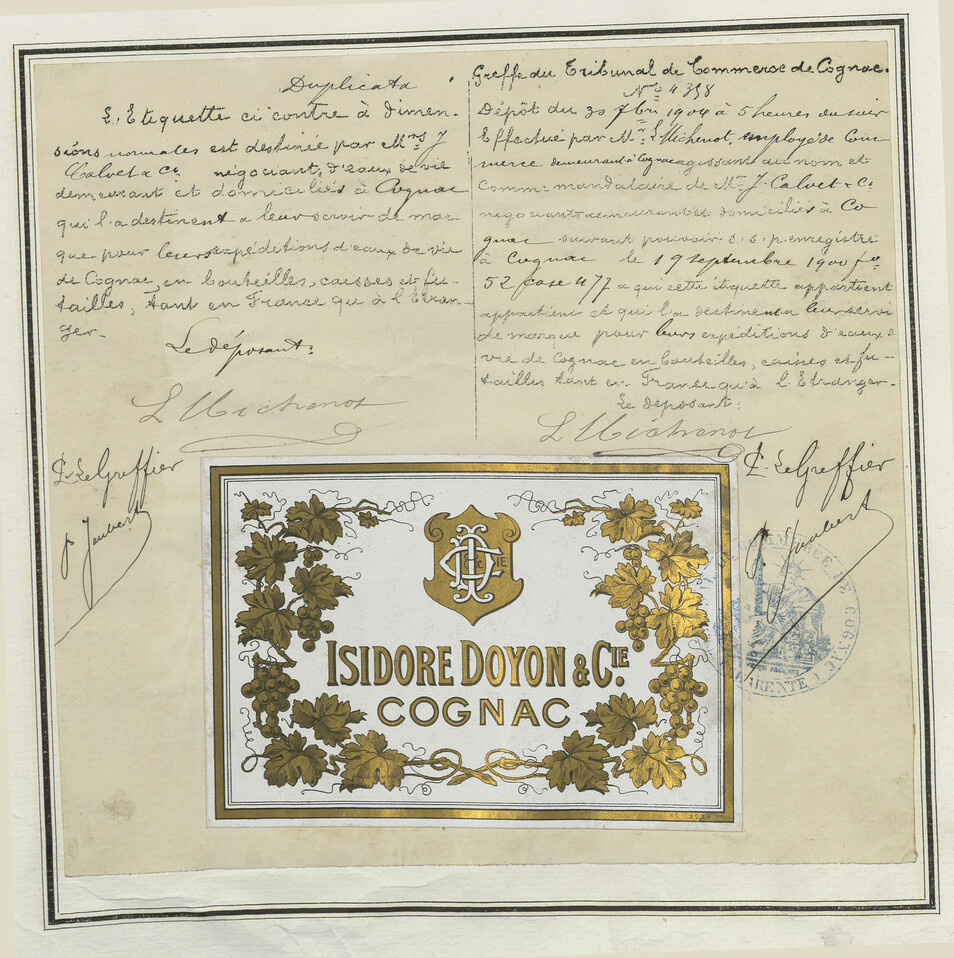 Duplicata
L'Etiquette ci contre à dimen-
sions normales est destinée par Mrs J
Calvet & Co négociants d'eaux de vie
demeurant et domiciliés à Cognac
qui l'a destinent a leur servir de mar-
que pour leurs expéditions d'eaux de vie
de Cognac en bouteilles, caisses et fu-
tailles, tant en France qu'à l'Etran-
ger.
Le déposant:
L Michenot
Pr Le Greffier
P Jaubert
Greffe du Tribunal de Commerce de Cognac.
No 4358
Dépôt du 30 7bre 1904 à 5 heures du soir
Effectué par Mr L Michenot, employé de Com
merce demeurant à Cognac agissant au nom et
comme mandataire de Mrs J. Calvet & Co
négociants demeurant et domiciliés à Co
gnac suivant pouvoir s. s. p. enregistré
à Cognac le 19 septembre 1900 fo
52 Case 477 a qui cette étiquette appartient
appartient et qui l'a destinent a leur servi
de marque pour leurs expéditions d'eaux
vie de Cognac en bouteilles, caisses et fu-
tailles tant en France qu'à l'Etranger.
Le déposant:
L Michenot
Pr Le Greffier
P Jaubert
& CIE
ISIDORE DOYON & CIE.
COGNAC
COMMERCE DE COGNAC
CHARENTE